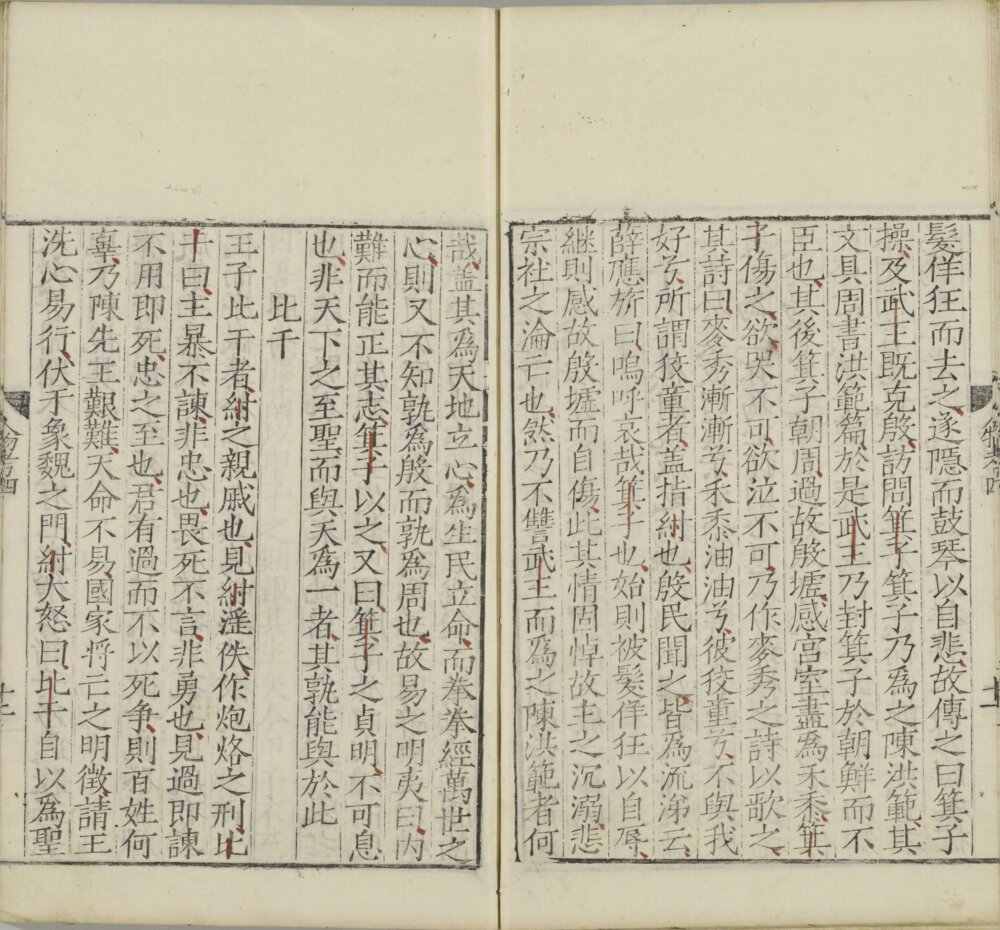 髮佯狂而去之遂隱而鼓琴以自悲故傳之曰箕子
操及武王既克殷訪問箕子箕子乃爲之陳洪範其
文具周書洪範篇於是武王乃封箕子於朝鮮而不
臣也其後箕子朝周過故殷墟感宮室盡爲禾黍箕
子傷之欲哭不可欲泣不可乃作麥秀之詩以歌之
其詩曰麥秀漸漸兮禾黍油油兮彼狡童兮不與我
好兮所謂狡童者蓋指紂也殷民聞之皆爲流涕云
薛應旂曰嗚呼哀哉箕子也始則被髮佯狂以自辱
繼則感故殷墟而自傷此其情固悼故主之沉溺悲
宗社之淪亡也然乃不讐武王而爲之陳洪範者何
哉盖其爲天地立心爲生民立命而拳拳經萬世之
心則又不知孰爲殷而孰爲周也故易之明夷曰内
難而能正其志箕子以之又曰箕子之貞明不可息
也非天下之至聖而與天爲一者其孰能與於此
比干
王子比干者紂之親戚也見紂淫佚作炮烙之刑比
干曰主暴不諫非忠也畏死不言非勇也見過即諫
不用即死忠之至也君有過而不以死争則百姓何
辜乃陳先王艱難天命不易國家將亡之明徵請王
洗心易行伏于象魏之門紂大怒曰比干自以爲聖